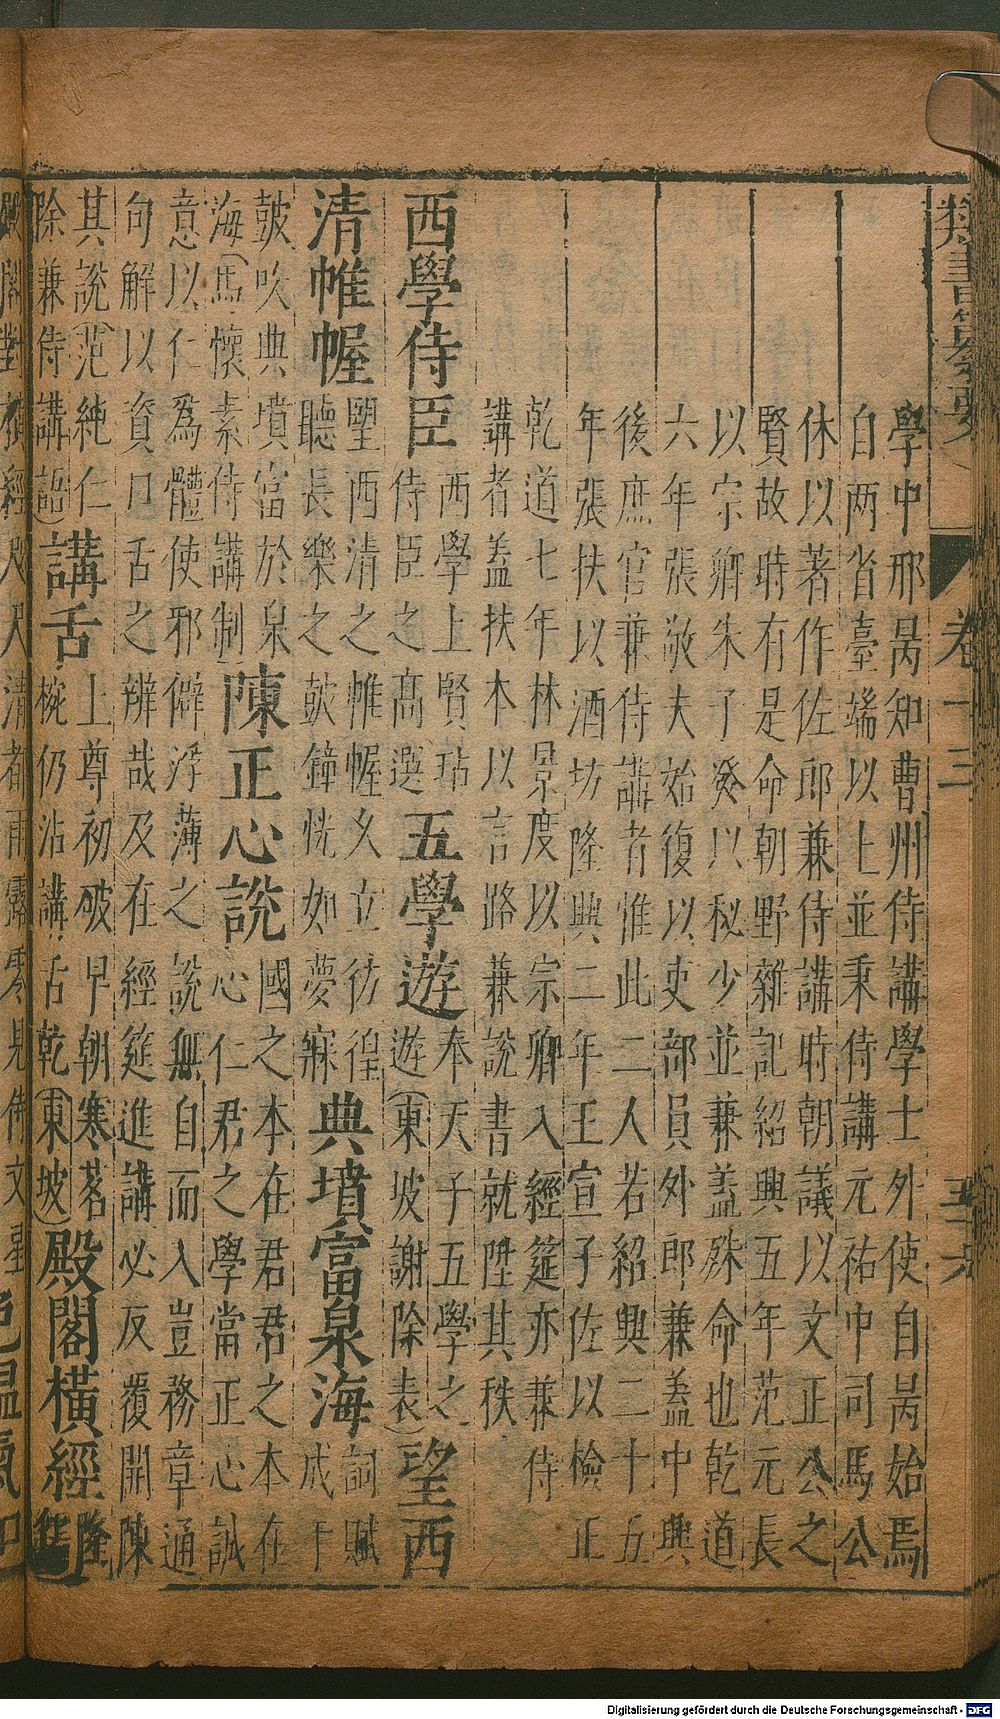 類書纂要
卷十三
五六
學中邢昺知曹州侍講學士外使自昺始焉
自两省臺端以上並秉侍講元祐中司馬公
休以著作佐郎兼侍講時朝議以文正公之
賢故時有是命朝野雜記紹興五年范元長
以宗卿朱子發以秘少並兼蓋殊命也乾道
六年張敬夫始復以吏部員外郎兼蓋中興
後庶官兼侍講者惟此二人若紹興二十五
年張扶以酒坊隆興二年王宣子佐以檢正
乾道七年林景度以宗卿入經筵亦兼侍
講者蓋扶本以言路兼說書就陞其秩
西學侍臣
西學上賢玷
侍臣之高選
五學遊
奉天子五學之
遊(東坡謝除表)
望西
清帷幄
聖西清之帷幄久立彷徨
聽長樂之鼓鐘恍如夢寐
典墳富泉海
詞賦
成于
鼓吹典墳富於泉
海(馬懷素侍講制)
陳正心說
國之本在君君之本在
心仁君之學當正心誠
意以仁為體使邪僻浮薄之說無自而入豈務章通
句解以資口舌之辨哉及在經筵進講必反覆開陳
其說(范純仁
除兼侍講語)
講舌
上尊初破早朝寒茗
椀仍沾講舌乾(東坡)
殿閣橫經
隆
殿閣對橫經及尺清都雨露零見佛文星
色溫氣和
Digitalisierung gefördert durch die Deutsche Forschungsgemeinschaft - DFG